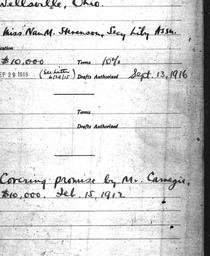 Wellsville, Ohio.
Miss Nan M. Stevenson, Secy Liby Assn.
$10,000 Terms 10%
SEP 29 1916 (See letter Drafts Authorized Sept. 13, 1916
Terms
Drafts Authorized
Covering promise by Mr. Carnegie,
$10,000. Feb. 15, 1912